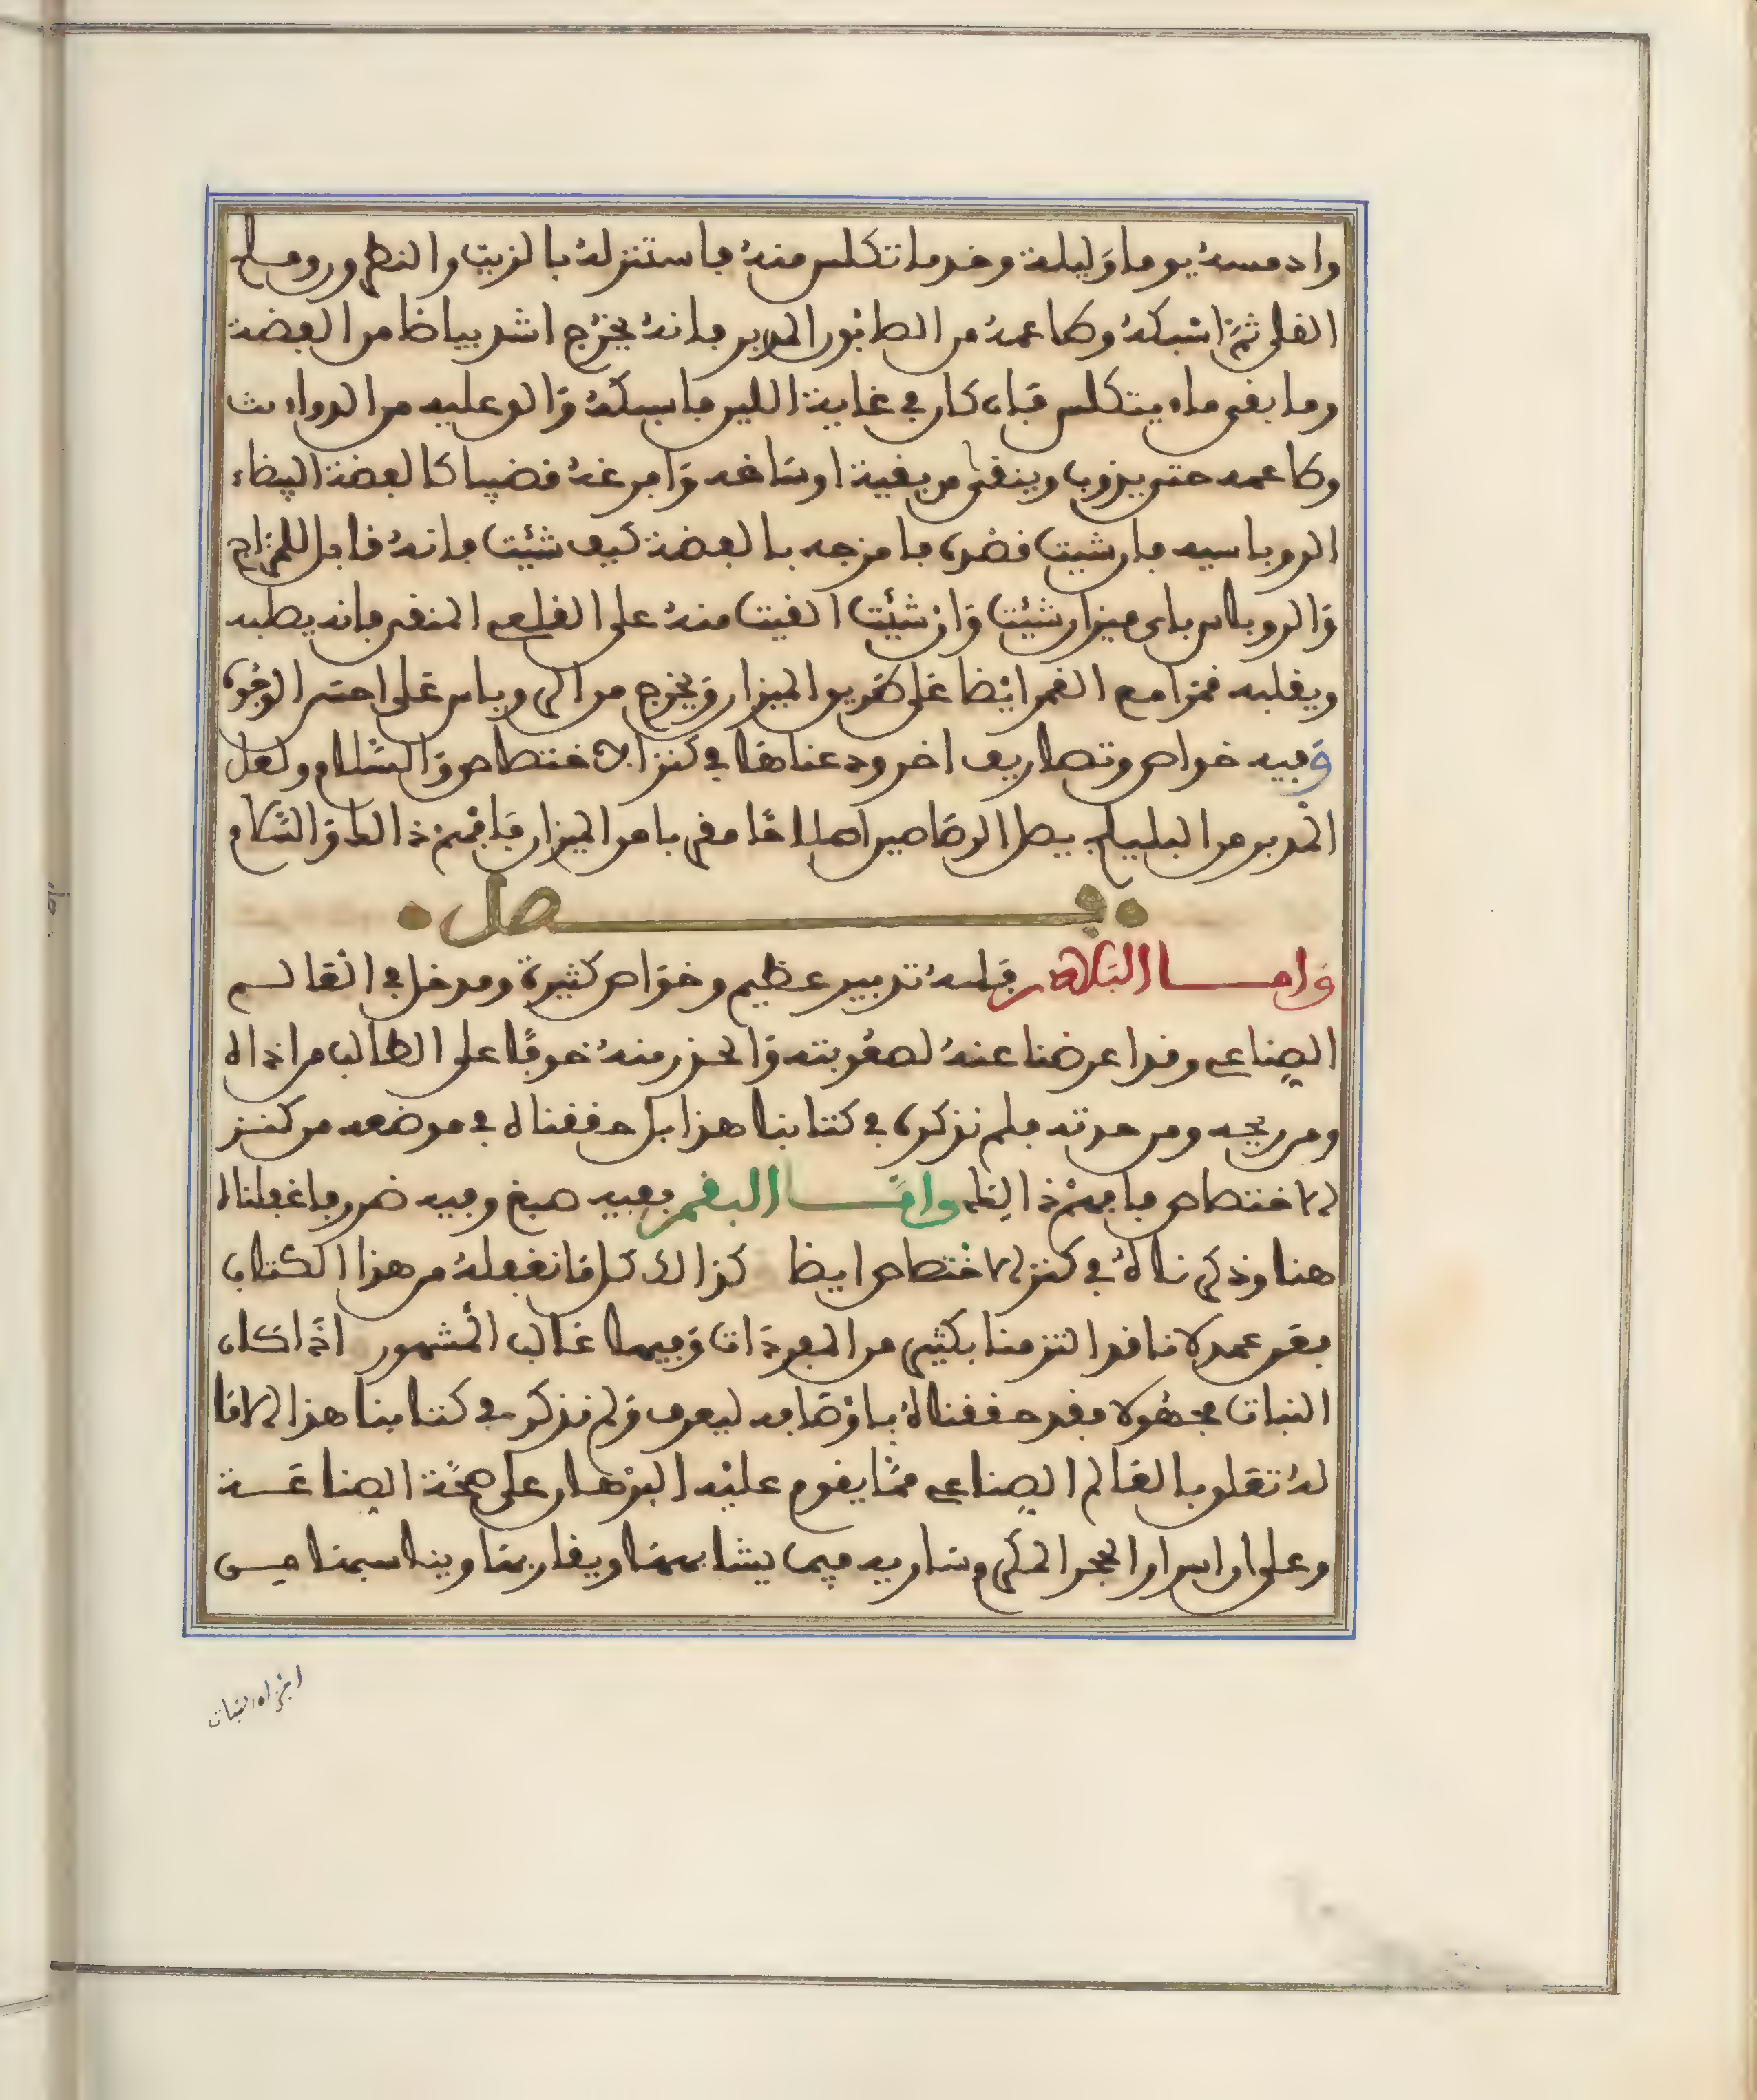 وادمسه يوما وليلة وخذ ما تكلس منه فاستنزله بالزيت والنطرور وملح
القلي ثم اسبكه وطاعمه من الطابور المدبر فانه يخرج اشد بياضا من الفضة
وما بقى ماء يتكلس فان كان في غاية اللين فاسبكه والو عليه من الدواء
وطاعمه حتى يذوب وينقى من بقية اوساخه وافرغه قضيبا كالفضة البيضاء
الروباسيه فان شيت قصره فامزجه بالفضة كيف شئت فانه قابل للمزاج
والروباس باى ميزان شيئت وان شيئت القيت منه على القلعى المنقى فانه يصلبه
ويقلبه قمرا مع القمر ايضا على طريق الميزان ويخرج من الروباس على احسن الوجوه
وفيه خواص وتصاريف اخر ودعناها في كنز الاختصاص والسلام ولعل
المدبر من البليلج يصل الرصاصين اصلاحا ما في بامر الميزان فافهم ذالك والسلام
فصل
واما البلاذر فله تدبير عظيم وخواص كثيرة ومدخل في العالم
الصناعي وقد اعرضنا عنه لصعوبته والحذر منه خوفا على الطالب من اذاه
ومن ريحه ومن حدته فلم نذكره في كتابنا هذا بل حققناه في موضعه من كنز
الاختصاص فافهم ذالك واما البقم ففيه صبغ وفيه ضرر فاغفلناه
هنا وذكرناه في كنز الاختصاص ايضا كذالك كل ما نغفله من هذا الكتاب
فعن عمد لاننا قد التزمنا بكثير من المفردات وفيها غالب المشهور اذا كان
النبات مجهولا فقد حققناه باوصافه ليعرف ولم نذكر في كتابنا هذا الا ما
له تعلق بالعالم الصناعي مما يقوم عليه البرهان على صحة الصناعة
وعلى ان اسرار الحجر المكرم سارية فيما يشابهها ويقاربها ويناسبها من
اجزاء النبات